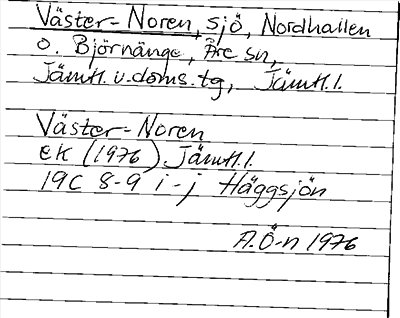 Väster-Noren, sjö, Nordhallen
o. Björnänge, Åre sn,
Jämtl. v. doms. tg, Jämtl. l.
Väster-Noren
ek (1976) Jämtl. l.
19C 8-9 i-j Häggsjön
A.Ö-n 1976